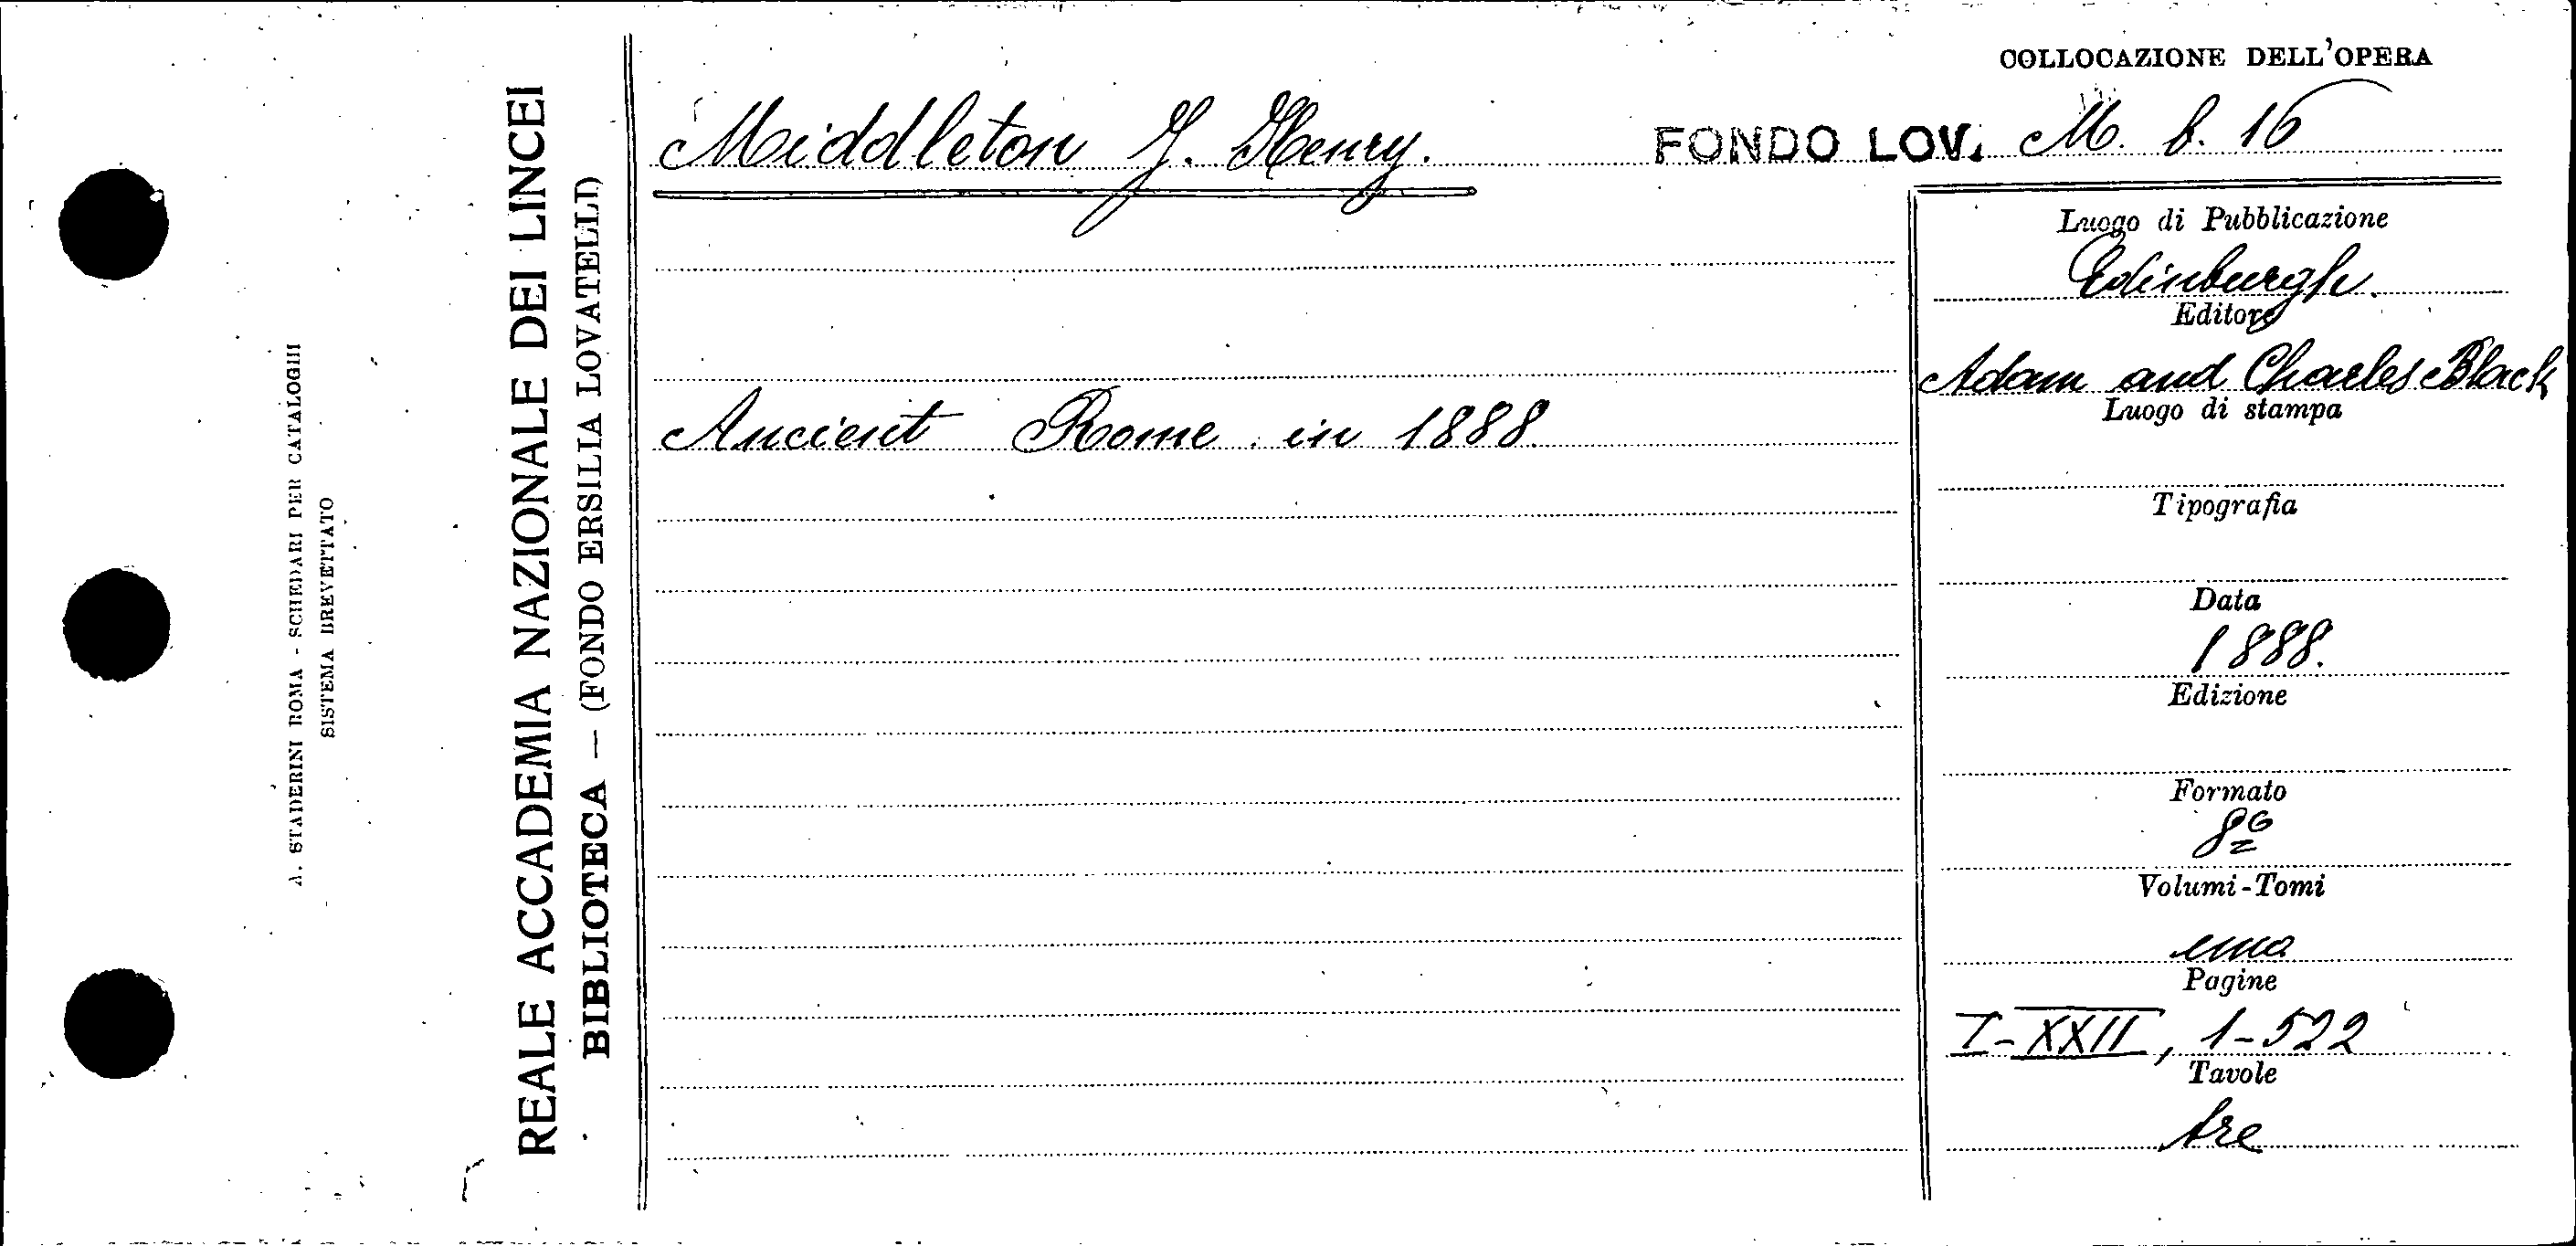 A. STADERINI ROMA - SCHEDARI PER CATALOGHI
SISTEMA BREVETTATO
REALE ACCADEMIA NAZIONALE DEI LINCEI
BIBLIOTECA — (FONDO ERSILIA LOVATELLI)
COLLOCAZIONE DELL'OPERA
Middleton J. Henry.
FONDO LOV. M. b. 16
Ancient Rome in 1888.
Luogo di Pubblicazione
Edinburgh.
Editore
Adam and Charles Black
Luogo di stampa
Tipografia
Data
1888.
Edizione
Formato
8º
Volumi-Tomi
uno
Pagine
I-XXII, 1-522
Tavole
tre